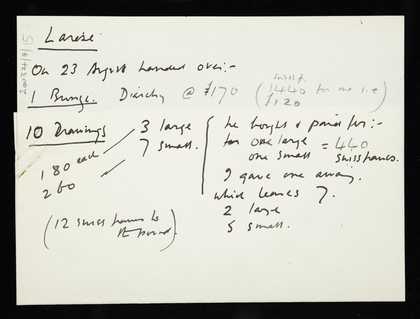 Larese
On 23 August handed over:-
1 Bronze. Diarchy @ £170 (Swiss f. 1440 for me i.e £120
10 Drawings
3 large
7 small.
1 80 each
2 60
(12 swiss francs to the pound)
he bought & paid for:-
for one large
one small = 440 swiss francs.
I gave one away.
which leaves 7.
2 large
5 small.